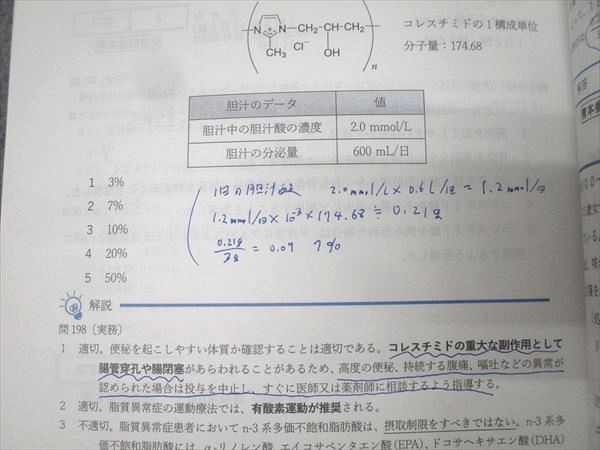 コレスチミドの1構成単位
分子量：174.68
N N－CH₂－CH－CH₂
CH₃ Cl⁻ OH
n
胆汁のデータ 値
胆汁中の胆汁酸の濃度 2.0 mmol/L
胆汁の分泌量 600 mL/日
1 3%
2 7%
3 10%
4 20%
5 50%
1日の胆汁酸 2.0mmol/L×0.6L/日＝1.2mmol/日
1.2mmol/日×10⁻³×174.68≒0.21g
0.21g/3g＝0.07 7%
解説
問198〔実務〕
1 適切。便秘を起こしやすい体質か確認することは適切である。コレスチミドの重大な副作用として
腸管穿孔や腸閉塞があらわれることがあるため、高度の便秘、持続する腹痛、嘔吐などの異常が
認められた場合は投与を中止し、すぐに医師又は薬剤師に相談するよう指導する。
2 適切。脂質異常症の運動療法では、有酸素運動が推奨される。
3 不適切。脂質異常症患者において n-3 系多価不飽和脂肪酸は、摂取制限をすべきではない。n-3 系多
価不飽和脂肪酸には、α-リノレン酸、エイコサペンタエン酸(EPA)、ドコサヘキサエン酸(DHA)
解答